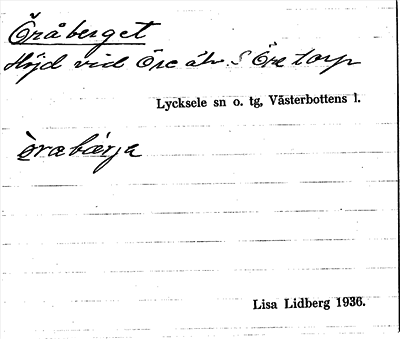 Öråberget
Höjd vid Öre älv S Öretorp
Lycksele sn o. tg, Västerbottens l.
òrabǽrja
Lisa Lidberg 1936.